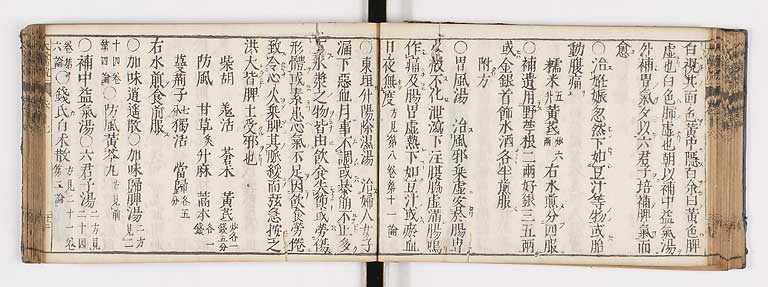 白視其面色黄中隱白余曰黄色脾
虚也白色肺虚也朝以補中益氣湯
外補胃氣夕以六君子培補脾氣而
愈
○治姙娠忽然下如豆汁等物或胎
動腹痛
糯米五升黄芪六兩 右水煎分四服
○補遺用野苧根二兩好銀三五兩
或金銀首飾水酒各半煎服
附方
○胃風湯 治風邪乗虚客於腸胃
水穀不化泄瀉下注腹脇虚滿腸鳴
作痛及腸胃虚熱下如豆汁或瘀血
日夜無度 方見第八卷第十一論
○東垣升陽除濕湯 治婦人女子
漏下惡血月事不調或暴崩不止多
下水漿之物皆由飲食失節或勞傷
形體或素患心氣不足因飲食勞倦
致令心火乗脾其脉緩而弦急按之
洪大皆脾土受邪也
柴胡 羗活 蒼朮 黄芪
防風 甘草炙 升麻 藁本各一錢
蔓荆子七分 獨活 當歸各五分
右水煎食前服
○加味逍遥散○加味歸脾湯二方見二
十四卷第四論○防風黄芩丸方見前
○補中益氣湯○六君子湯二方見二十四
卷第六論○錢氏白朮散方見二十一卷第二論